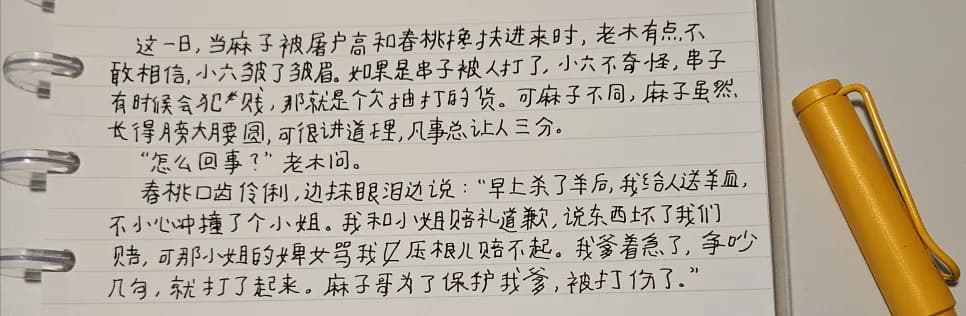 这一日，当麻子被屠户高和春桃搀扶进来时，老木有点不
敢相信，小六皱了皱眉。如果是串子被人打了，小六不奇怪，串子
有时候会犯贱，那就是个欠抽打的货。可麻子不同，麻子虽然
长得膀大腰圆，可很讲道理，凡事总让人三分。
“怎么回事？”老木问。
春桃口齿伶俐，边抹眼泪边说：“早上杀了羊后，我给人送羊血，
不小心冲撞了个小姐。我和小姐赔礼道歉，说东西坏了我们
赔，可那小姐的婢女骂我们压根儿赔不起。我爹着急了，争吵
几句，就打了起来。麻子哥为了保护我爹，被打伤了。”